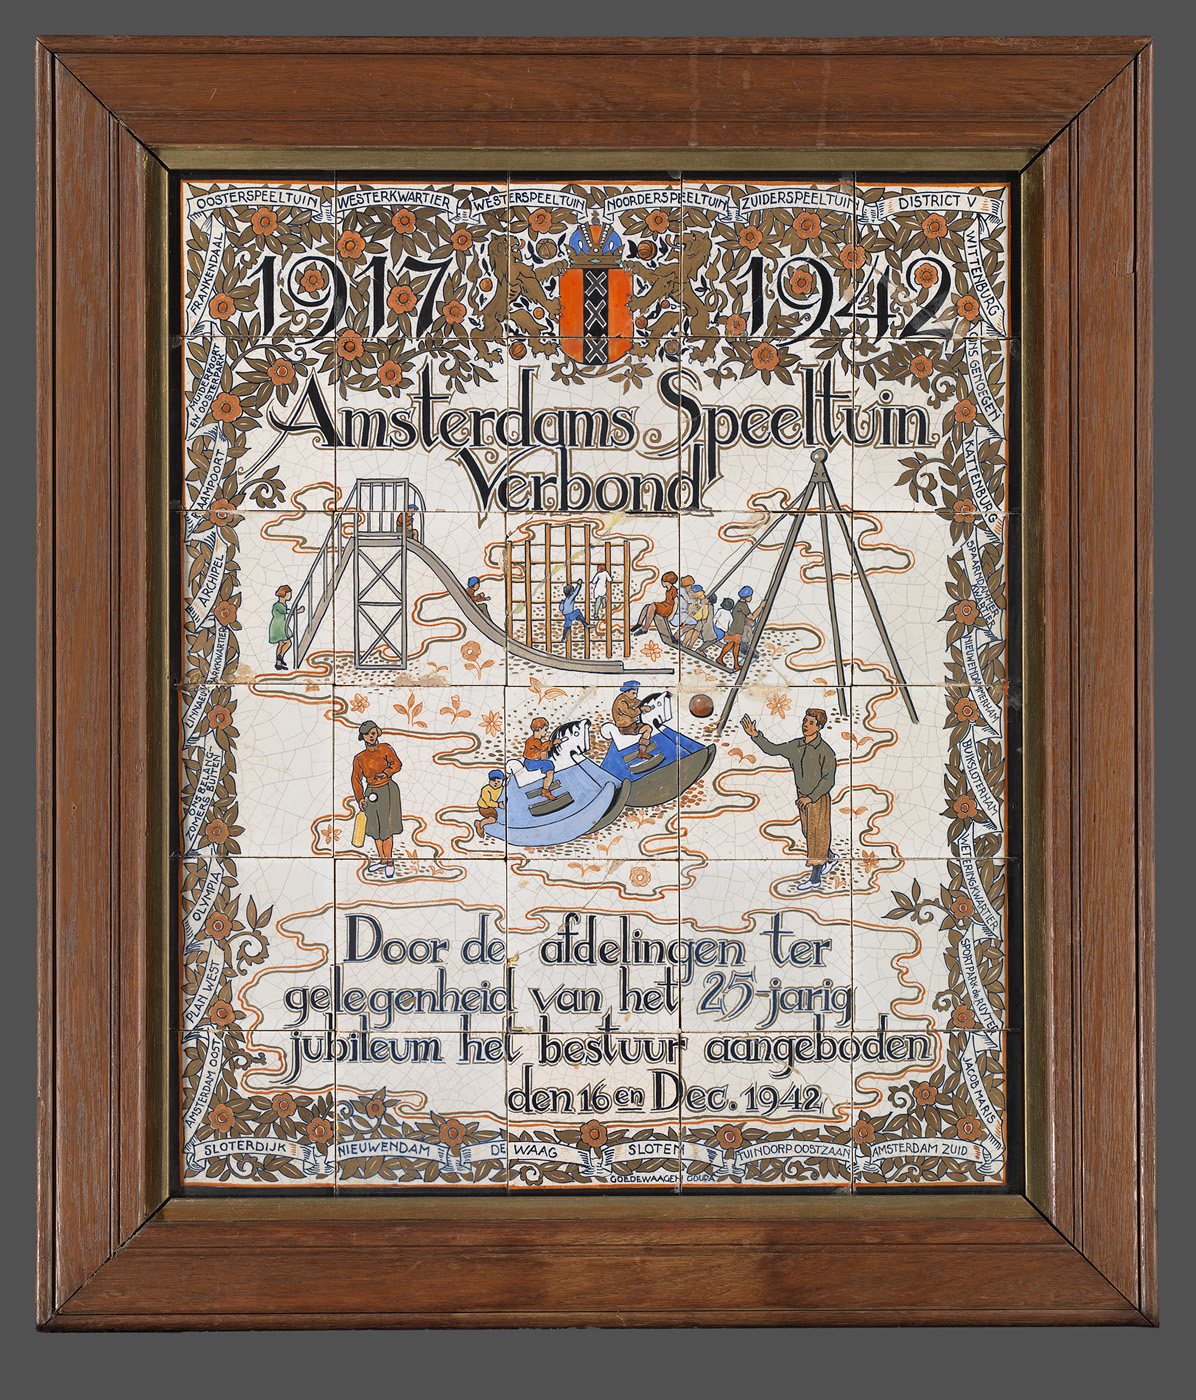 OOSTERSPEELTUIN WESTERKWARTIER WESTERSPEELTUIN NOORDERSPEELTUIN ZUIDERSPEELTUIN DISTRICT V
1917 1942
Amsterdams Speeltuin
Verbond
Door de afdelingen ter
gelegenheid van het 25-jarig
jubileum het bestuur aangeboden
den 16en Dec. 1942
FRANKENDAAL
EN OOSTERPARK
ARCHIPEL
LINNAEUSPARKKWARTIER
ONS BELANG
ZOMERS BUITEN
OLYMPIA
PLAN WEST
AMSTERDAM OOST
WITTENBURG
ONS GENOEGEN
KATTENBURG
SPAARNDAMMERKWARTIER
NIEUWENDAMMERHAM
BUIKSLOTERHAM
WETERINGKWARTIER
SPORTPARK DE RUYTER
JACOB MARIS
SLOTERDIJK NIEUWENDAM DE WAAG SLOTEN TUINDORP OOSTZAAN AMSTERDAM ZUID
GOEDEWAAGEN GOUDA